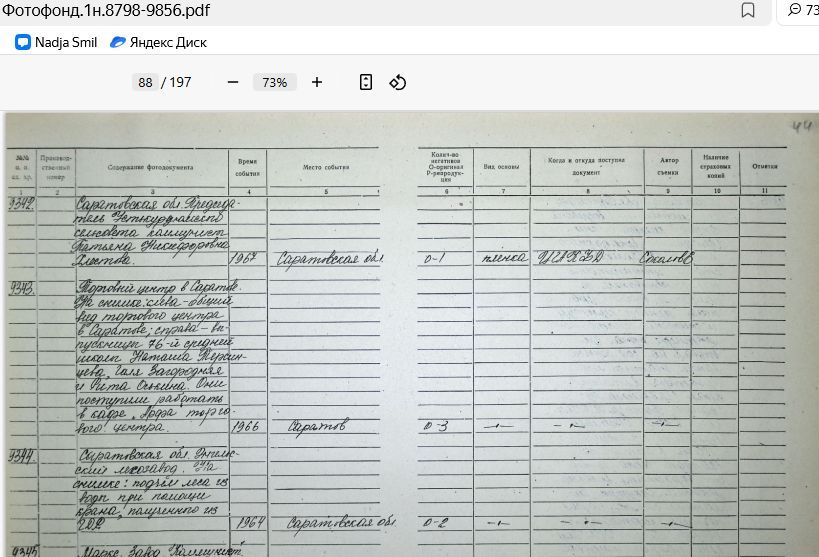 Фотофонд.1н.8798-9856.pdf
73
Nadja Smil
Яндекс Диск
88 / 197
73%
44
№№ п. п. ед. хр.
Производственный номер
Содержание фотодокумента
Время события
Место события
Колич-во негативов О-оригинал Р-репродукция
Вид основы
Когда и откуда поступил документ
Автор съемки
Наличие страховых копий
Отметки
1 2 3 4 5 6 7 8 9 10 11
9342.
Саратовская обл. Председа-
тель
сельсовета коммунист
Татьяна Никифоровна
1967 Саратовская обл О-1 пленка ЦГАКФД Соколов
9343.
Торговый центр в Саратове.
На снимке: слева - общий
вид торгового центра
в Саратове; справа - вы-
пускницы 76-й средней
школы Наташа
Галя Загородняя
и Рита Оськина. Они
поступили работать
в кафе торго-
вого центра. 1966 Саратов О-3 -"- -"- -"-
9344.
Саратовская обл. Энгельс-
ский лесозавод. На
снимке: подъем леса из
воды при помощи
крана, полученного из
ГДР 1964 Саратовская обл О-2 -"- -"- -"-
9345
Маркс. Завод "Коммунист".